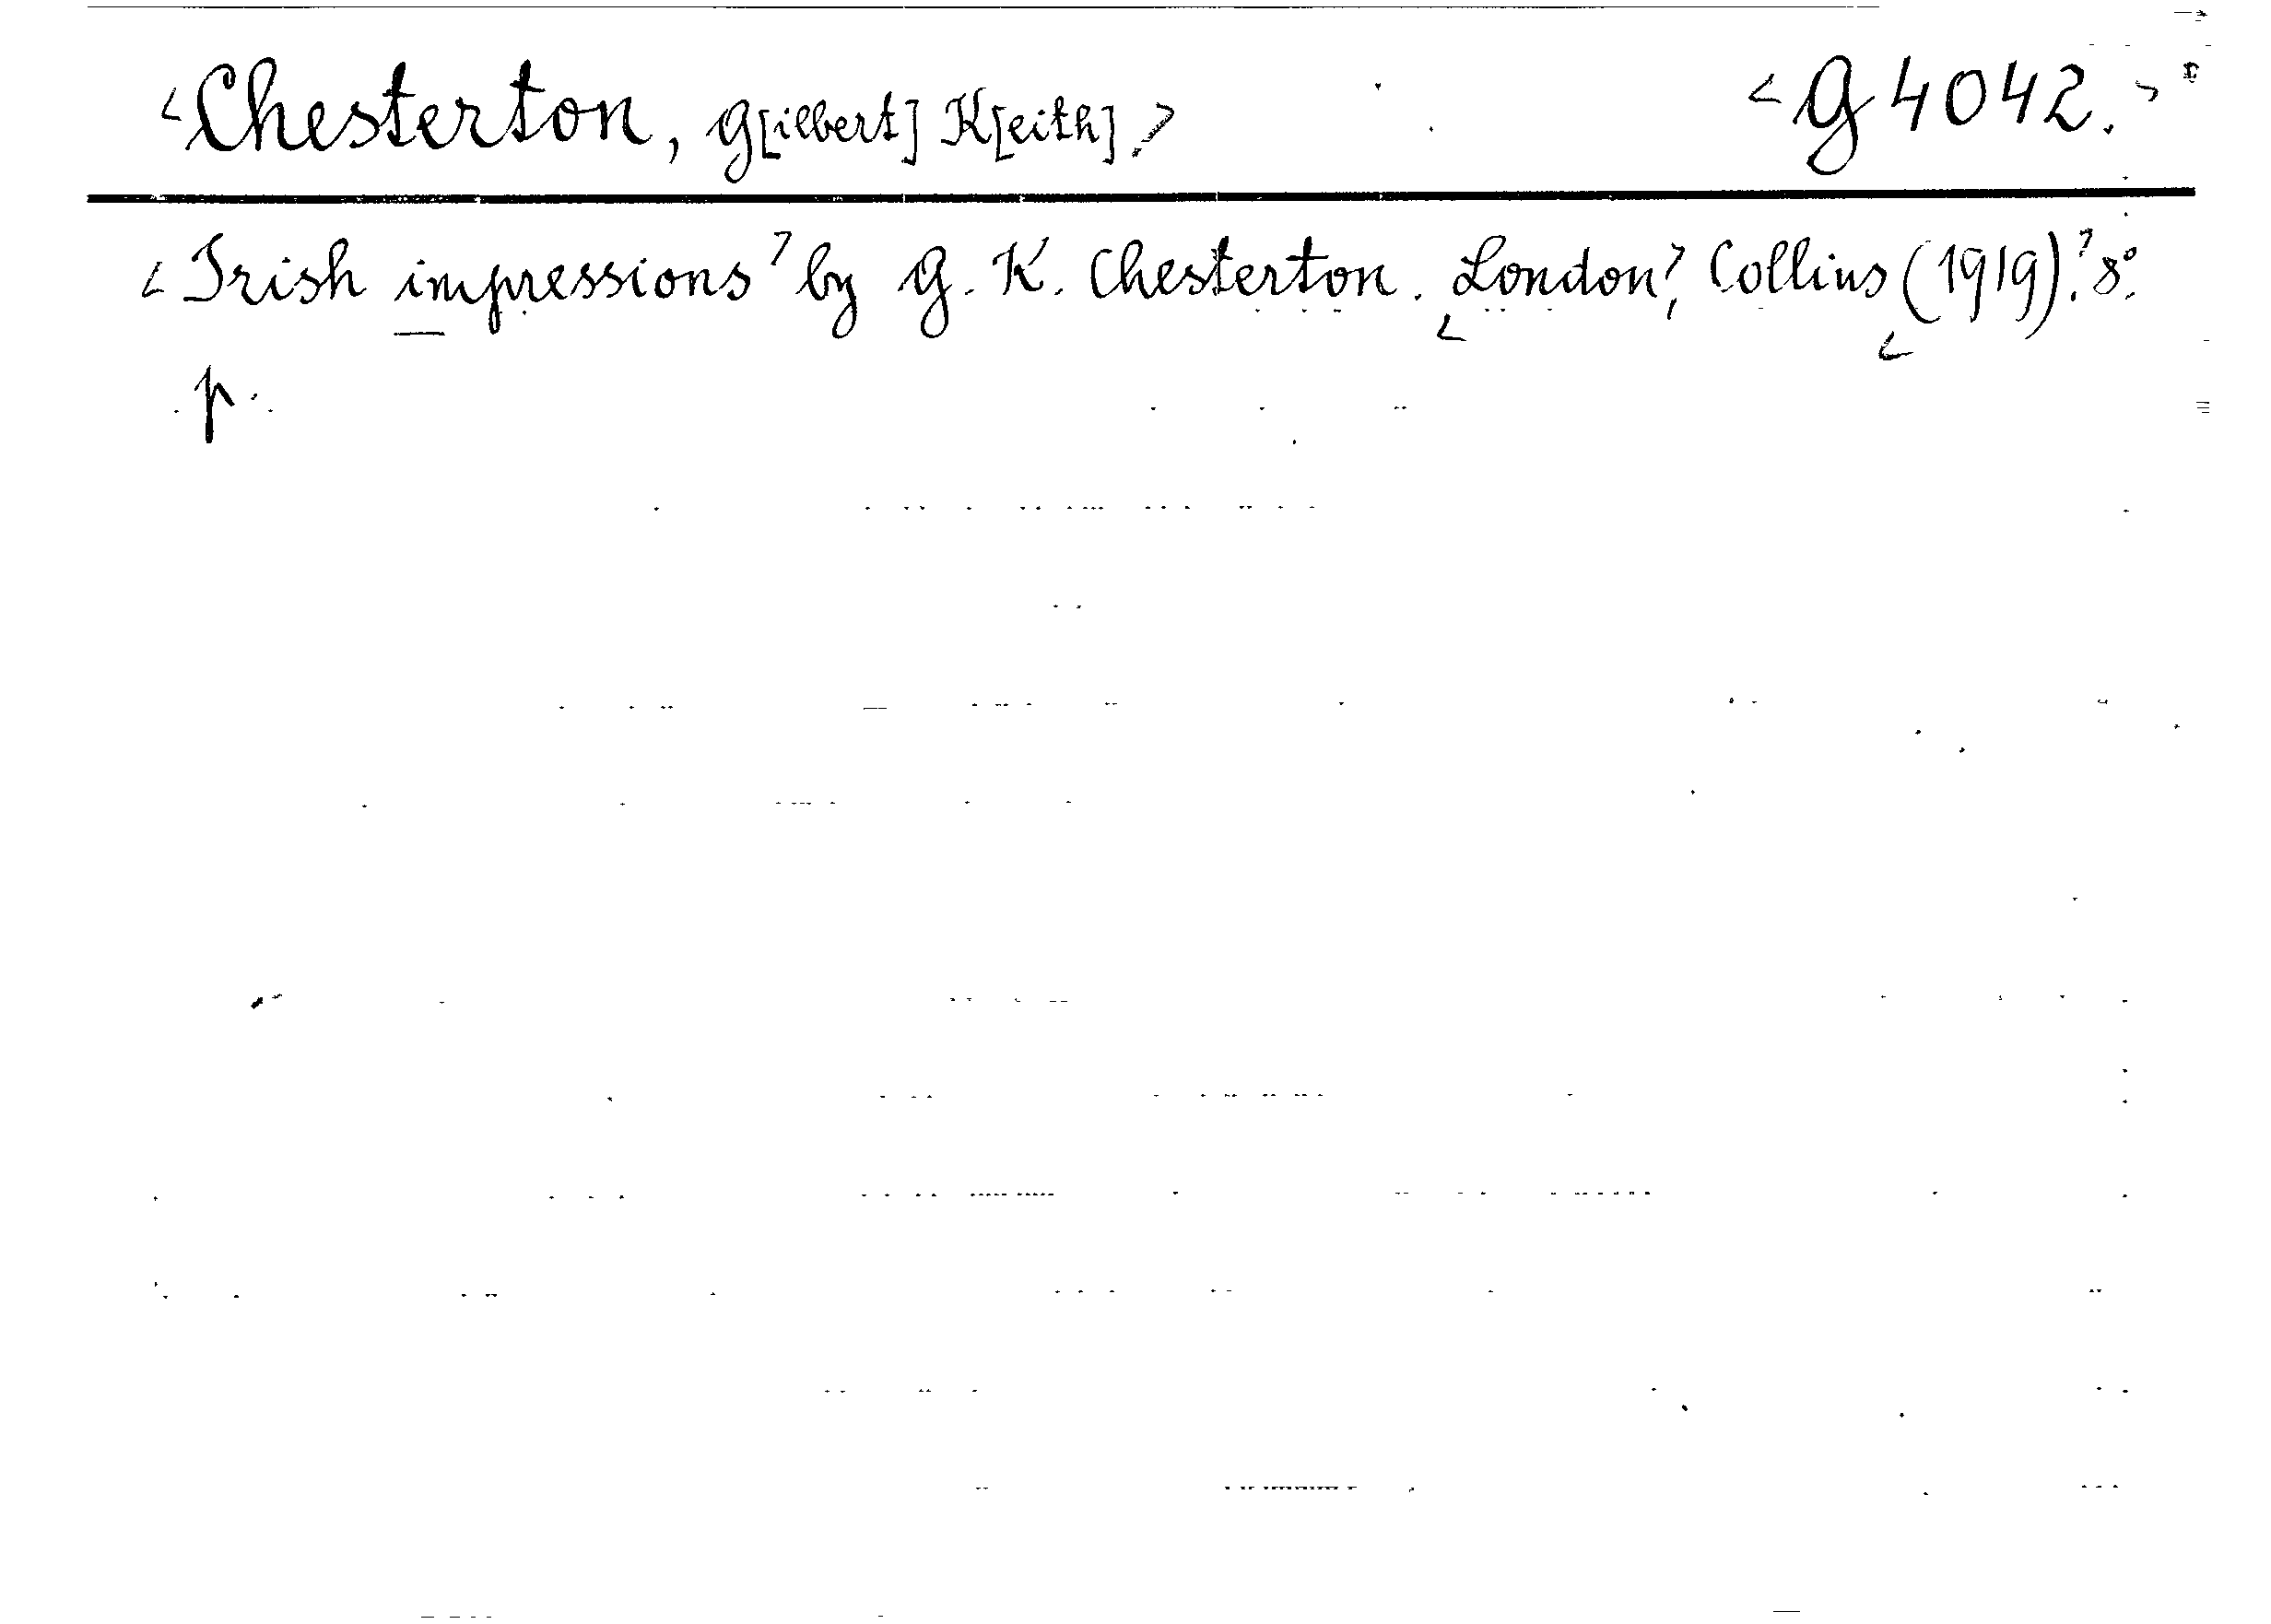 <Chesterton, G[ilbert] K[eith].> <G 4042.>
<Irish impressions> by G. K. Chesterton. <London>, Collins <(1919).> 8°.
p.